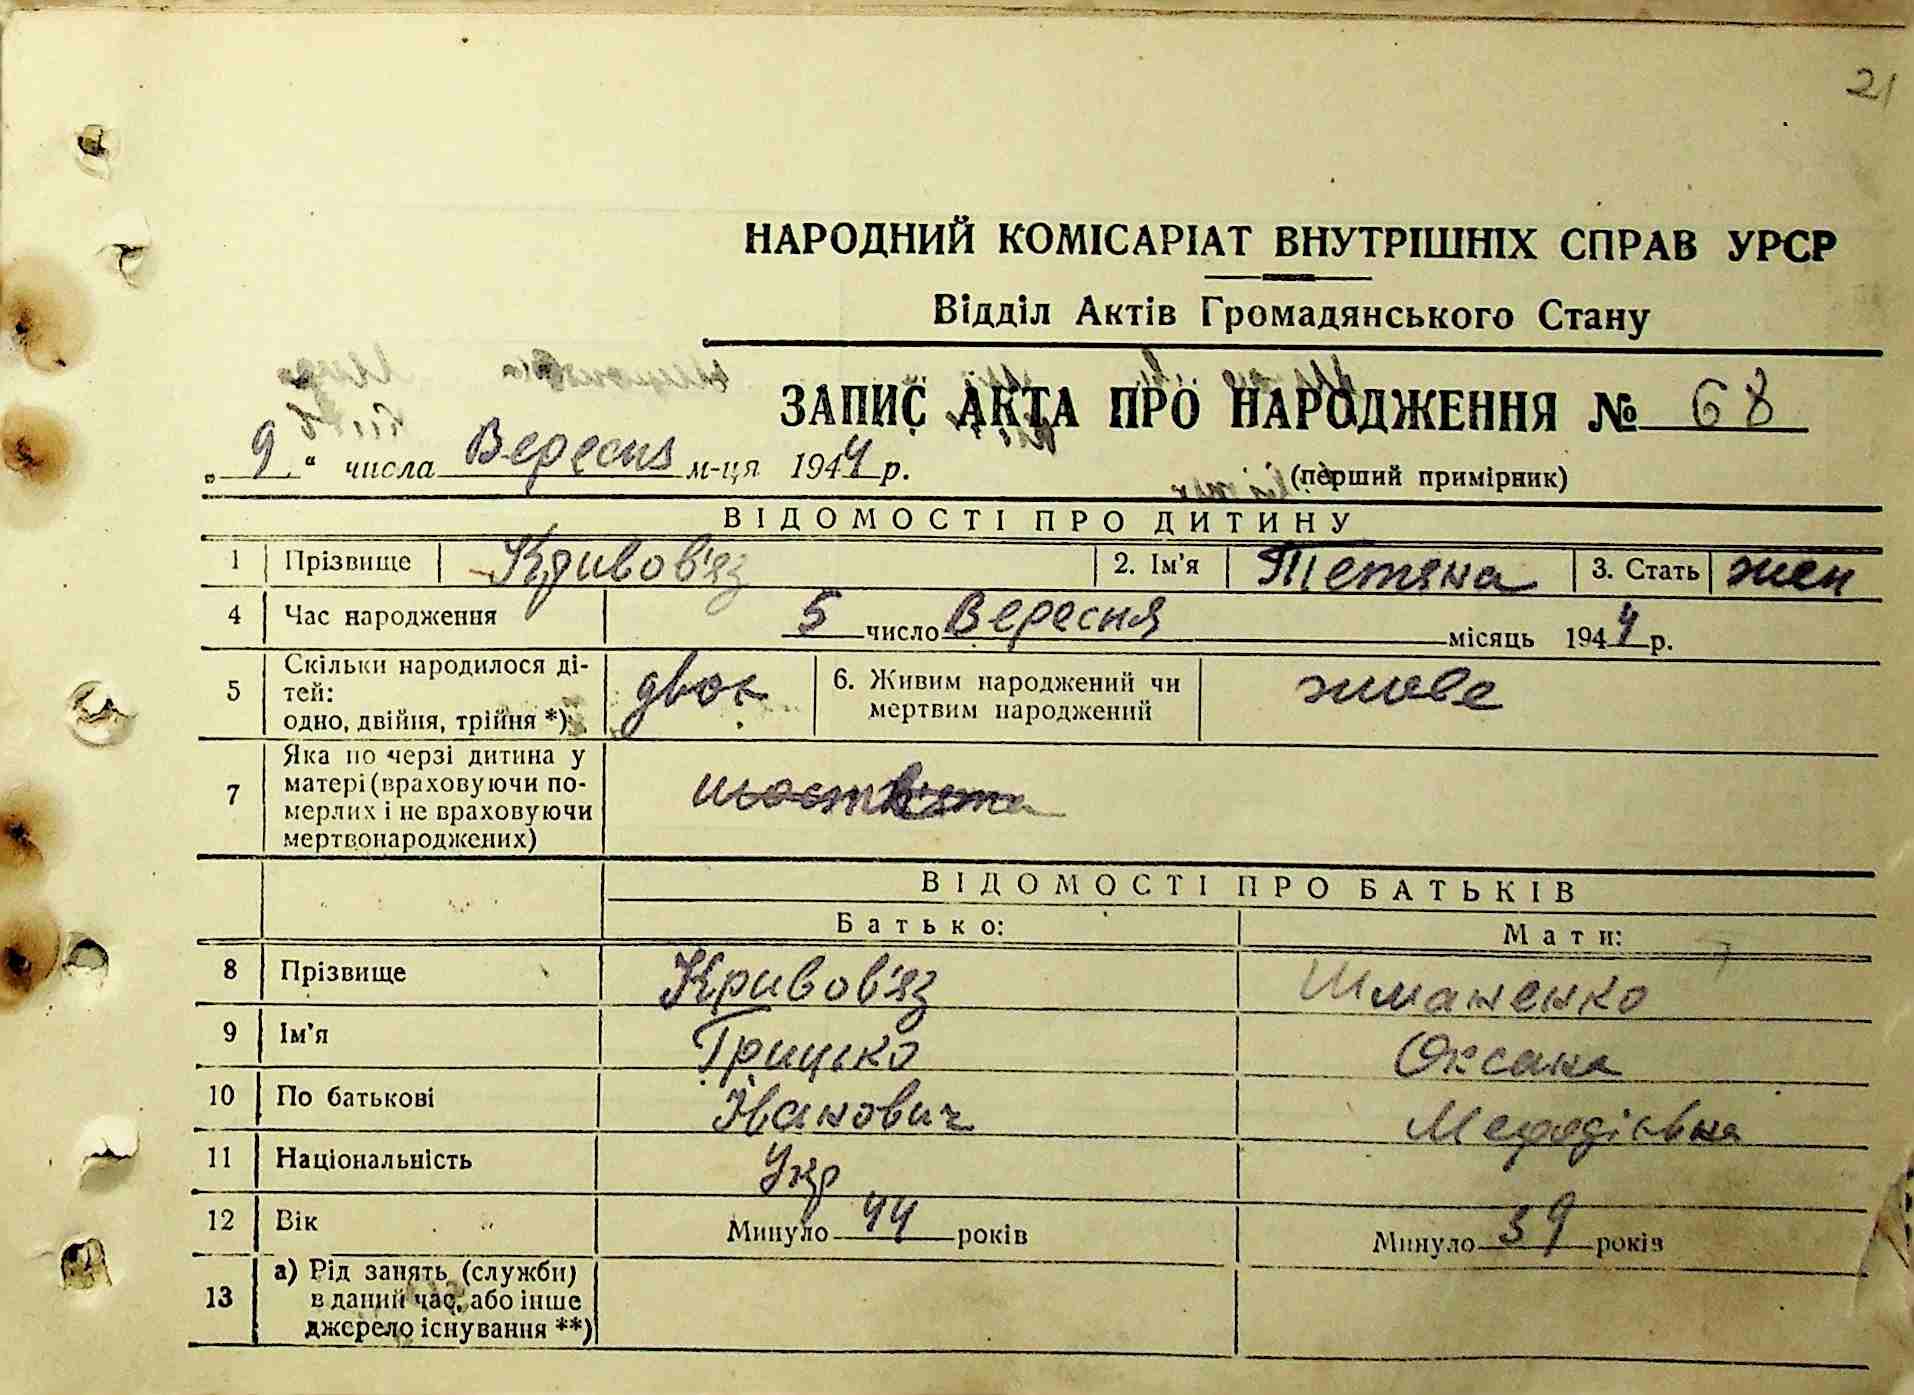 21
НАРОДНИЙ КОМІСАРІАТ ВНУТРІШНІХ СПРАВ УРСР
Відділ Актів Громадянського Стану
ЗАПИС АКТА ПРО НАРОДЖЕННЯ № 68
„9“ числа Вересня м-ця 1944 р.
(перший примірник)
ВІДОМОСТІ ПРО ДИТИНУ
1 Прізвище Кривов'яз 2. Ім'я Тетяна 3. Стать жен
4 Час народження 5 число Вересня місяць 1944 р.
5 Скільки народилося ді-
тей:
одно, двійня, трійня *) двоє 6. Живим народжений чи
мертвим народжений живе
7 Яка по черзі дитина у
матері (враховуючи по-
мерлих і не враховуючи
мертвонароджених)
ВІДОМОСТІ ПРО БАТЬКІВ
Батько: Мати:
8 Прізвище Кривов'яз Шманенко
9 Ім'я Грицько Оксана
10 По батькові Іванович Мефодієвна
11 Національність Укр
12 Вік Минуло 44 років Минуло 39 років
13 а) Рід занять (служби)
в даний час, або інше
джерело існування **)